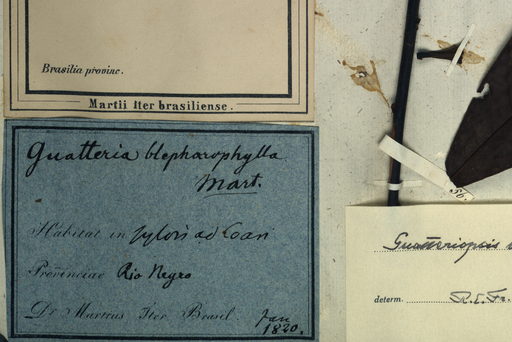 Brasilia provinc.
Martii Iter brasiliense.
Guatteria blepharophylla
Mart.
Habitat in sylvis ad Coari
Provinciae Rio Negro
Dr. Martius Iter Brasil. Jan.
1820.
56.
Guatteriopsis
determ. R.E.Fr.